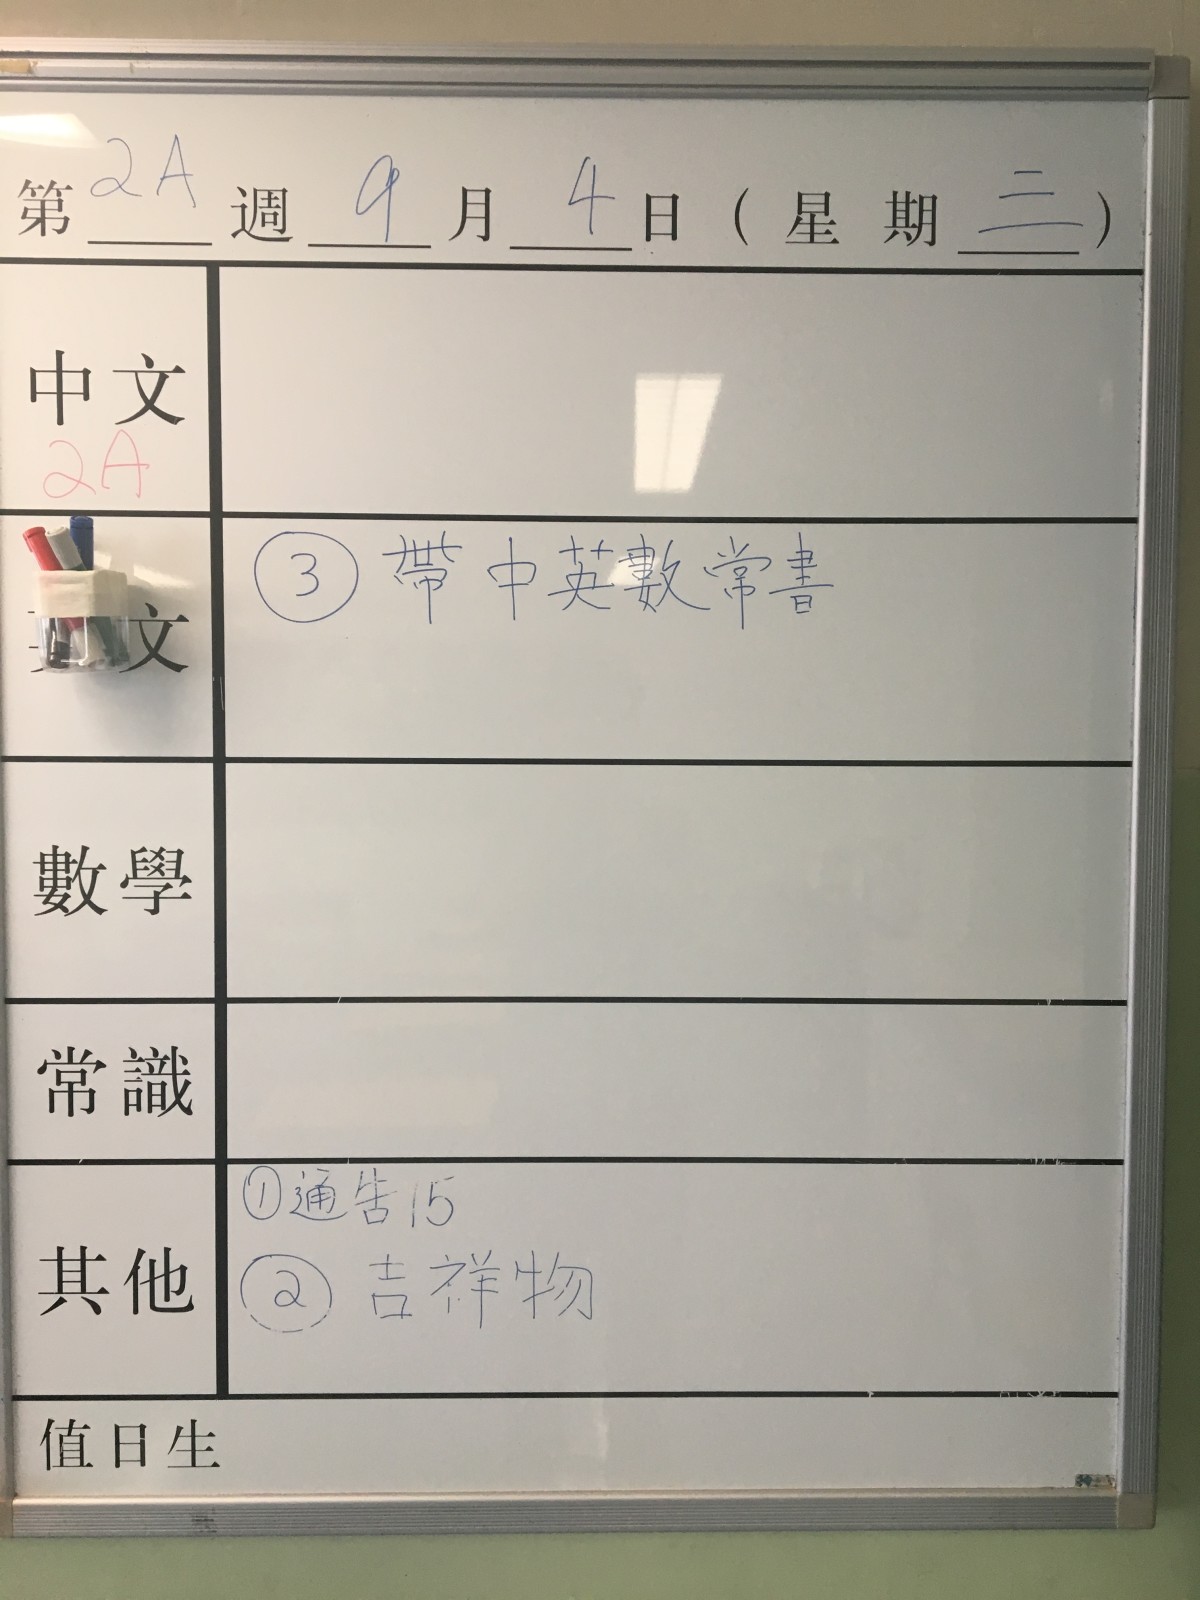 第 2A 週 9 月 4 日 ( 星 期 二 )
中文
2A
文
③ 帶中英數常書
數學
常識
其他
①通告15
② 吉祥物
值日生